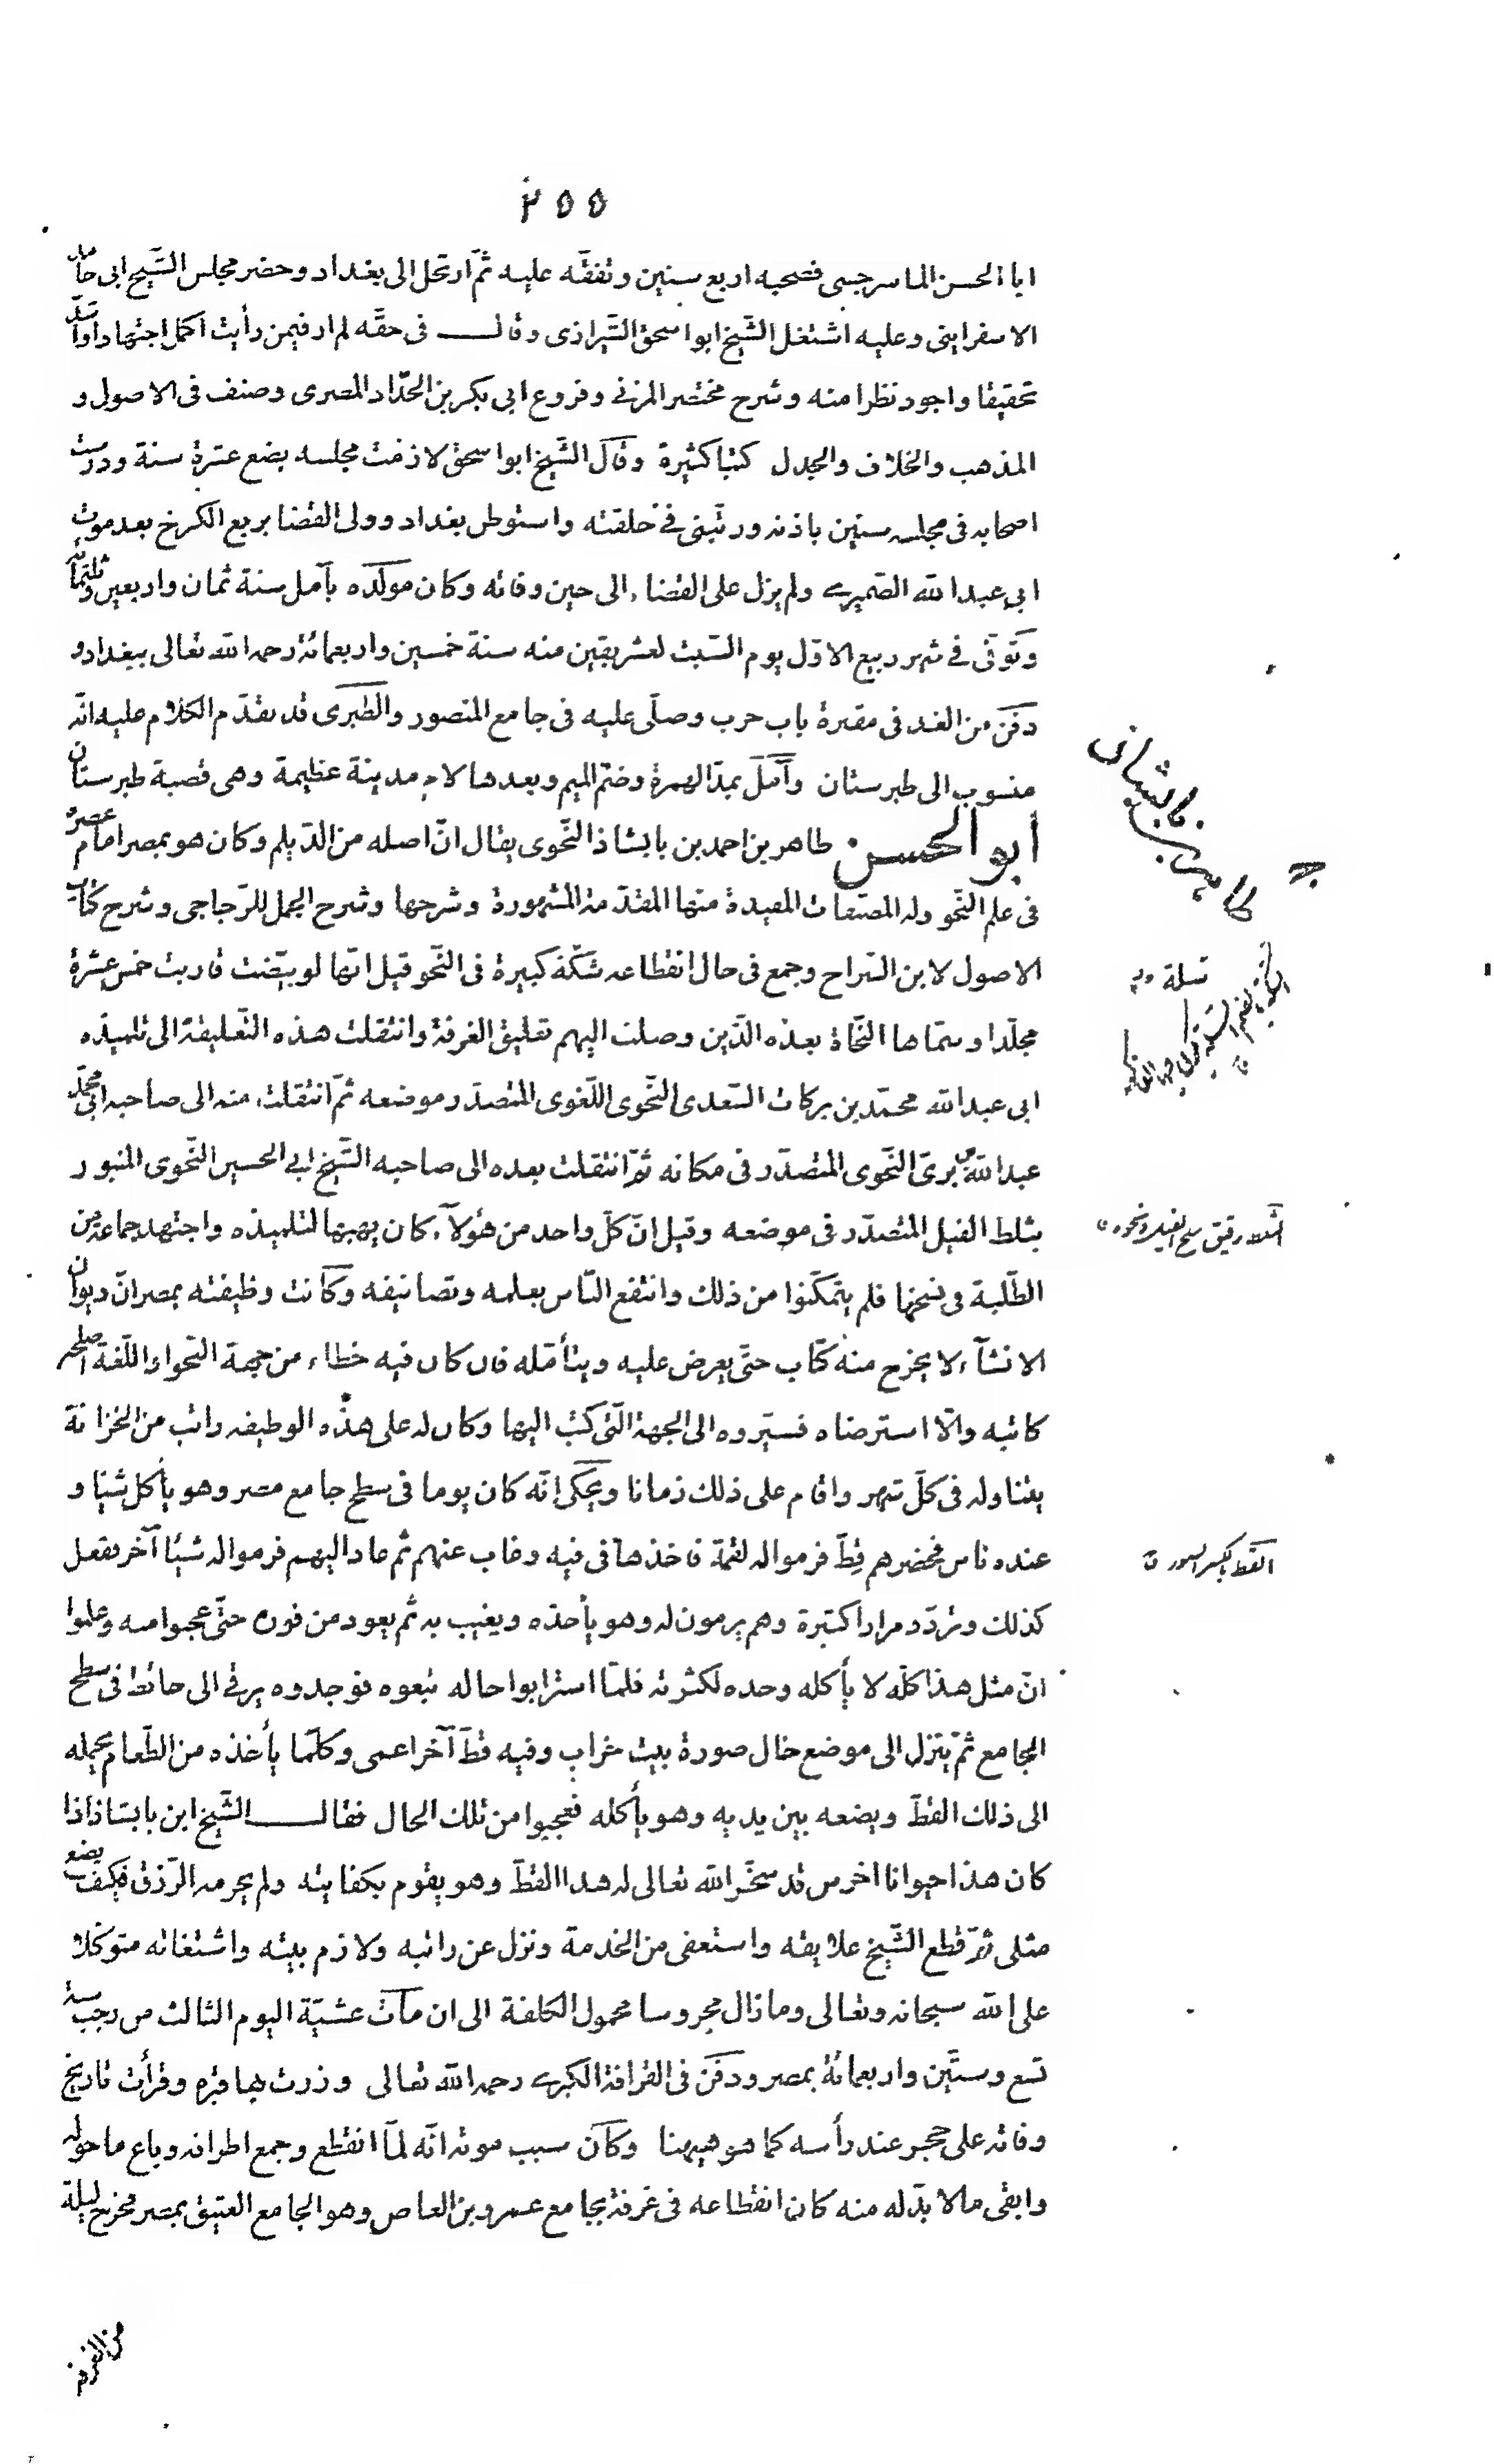 ٢٥٥
ابا الحسن الماسرجسى فصحبه اربع سنين وتفقّه عليه ثمّ ارتحل الى بغداد وحضر مجلس الشّيخ ابى حامد
الاسفراينى وعليه اشتغل الشّيخ ابواسحق الشّيرازى وقال فى حقّه لم ار فيمن رأيت اكمل اجتهادا واشدّ
تحقيقا واجود نظرا منه وشرح مختصر المزنى وفروع ابى بكر بن الحدّاد المصرى وصنف فى الاصول و
المذهب والخلاف والجدل كتبا كثيرة وقال الشّيخ ابواسحق لازمت مجلسه بضع عشرة سنة ودرست
اصحابه فى مجلسه سنين باذنه ورتّبنى فى حلقته واستوطن بغداد وولى القضا بربع الكرخ بعد موت
ابى عبدالله الصّميرى ولم يزل على القضاء الى حين وفاته وكان مولده بآمل سنة ثمان واربعين وثلثمائة
وتوفّى فى شهر ربيع الاوّل يوم السّبت لعشر بقين منه سنة خمسين واربعمائة رحمه الله تعالى ببغداد و
دفن من الغد فى مقبرة باب حرب وصلّى عليه فى جامع المنصور والطّبرى قد تقدّم الكلام عليه انّه
منسوب الى طبرستان وآمل بمدّ الهمزة وضمّ الميم وبعدها لام مدينة عظيمة وهى قصبة طبرستان
أبو الحسن طاهر بن احمد بن بابشاذ النّحوى يقال انّ اصله من الدّيلم وكان هو بمصر امام عصره
فى علم النّحو وله المصنّفات المفيدة منها المقدّمة المشهورة وشرحها وشرح الجمل للزّجاجى وشرح كتاب
الاصول لابن السّراج وجمع فى حال انقطاعه شكّة كبيرة فى النّحو قيل انّها لو بيّضت قاربت خمس عشرة
مجلّدا وسمّاها النّحاة بعده الّذين وصلت اليهم تعليق الغرفة وانتقلت هذه التّعليقة الى تلميذه
ابى عبدالله محمّد بن بركات السّعدى النّحوى اللّغوى المتصدّر موضعه ثمّ انتقلت منه الى صاحبه ابى محمّد
عبدالله بن برىّ النّحوى المتصدّر فى مكانه ثمّ انتقلت بعده الى صاحبه الشّيخ ابى الحسين النّحوى المنبور
بثلط الفيل المتصدّر فى موضعه وقيل انّ كلّ واحد من هؤلآء كان يهبها لتلميذه واجتهد جماعة من
الطّلبة فى نسخها فلم يتمكّنوا من ذلك وانتفع النّاس بعلمه وتصانيفه وكانت وظيفته بمصر انّ ديوان
الانشآء لا يخرج منه كتاب حتّى يعرض عليه ويتأمّله فان كان فيه خطاء من جهة النّحو او اللّغة اصلحه
كاتبه والّا استرضاه فسيّروه الى الجهة الّتى كتب اليها وكان له على هذه الوظيفه راتب من الخزانة
يتناوله فى كلّ شهر واقام على ذلك زمانا ويحكى انّه كان يوما فى سطح جامع مصر وهو يأكل شيئا و
عنده ناس فحضرهم قطّ فرموا له لقمة فاخذها فى فيه وغاب عنهم ثم عاد اليهم فرموا له شيئا آخر ففعل
كذلك وتردّد مرارا كثيرة وهم يرمون له وهو يأخذه ويغيب به ثم يعود من فوره حتّى عجبوا منه وعلموا
انّ مثل هذا كلّه لا يأكله وحده لكثرته فلمّا استرابوا حاله تبعوه فوجدوه يرقى الى حائط فى سطح
الجامع ثمّ ينزل الى موضع خال صورة بيت خراب وفيه قطّ آخر اعمى وكلّما يأخذه من الطّعام يحمله
الى ذلك القطّ ويضعه بين يديه وهو يأكله فعجبوا من تلك الحال فقال الشّيخ ابن بابشاذ اذا
كان هذا حيوانا اخرس قد سخّر الله تعالى له هذا القطّ وهو يقوم بكفايته ولم يحرمه الرّزق فكيف يضع
مثلى ثمّ قطع الشّيخ علايقه واستعفى من الخدمة ونزل عن راتبه ولازم بيته واشتغاله متوكّلا
على الله سبحانه وتعالى وما زال محروسا محمول الكلفة الى ان مات عشيّة اليوم الثالث من رجب سنة
تسع وستّين واربعمائة بمصر ودفن فى القرافة الكبرى رحمه الله تعالى وزرت بها قبره وقرأت تاريخ
وفاته على حجر عند رأسه كما هو هيهنا وكان سبب موته انّه لمّا انقطع وجمع اطرافه وباع ما حوله
وابقى ما لا بدّ له منه كان انقطاعه فى غرفة بجامع عمرو بن العاص وهو الجامع العتيق بمصر فخرج ليلة
من الغرفة
الثلط رقيق سلح الفيل ونحوه ق
القط بالكسر السنور ق